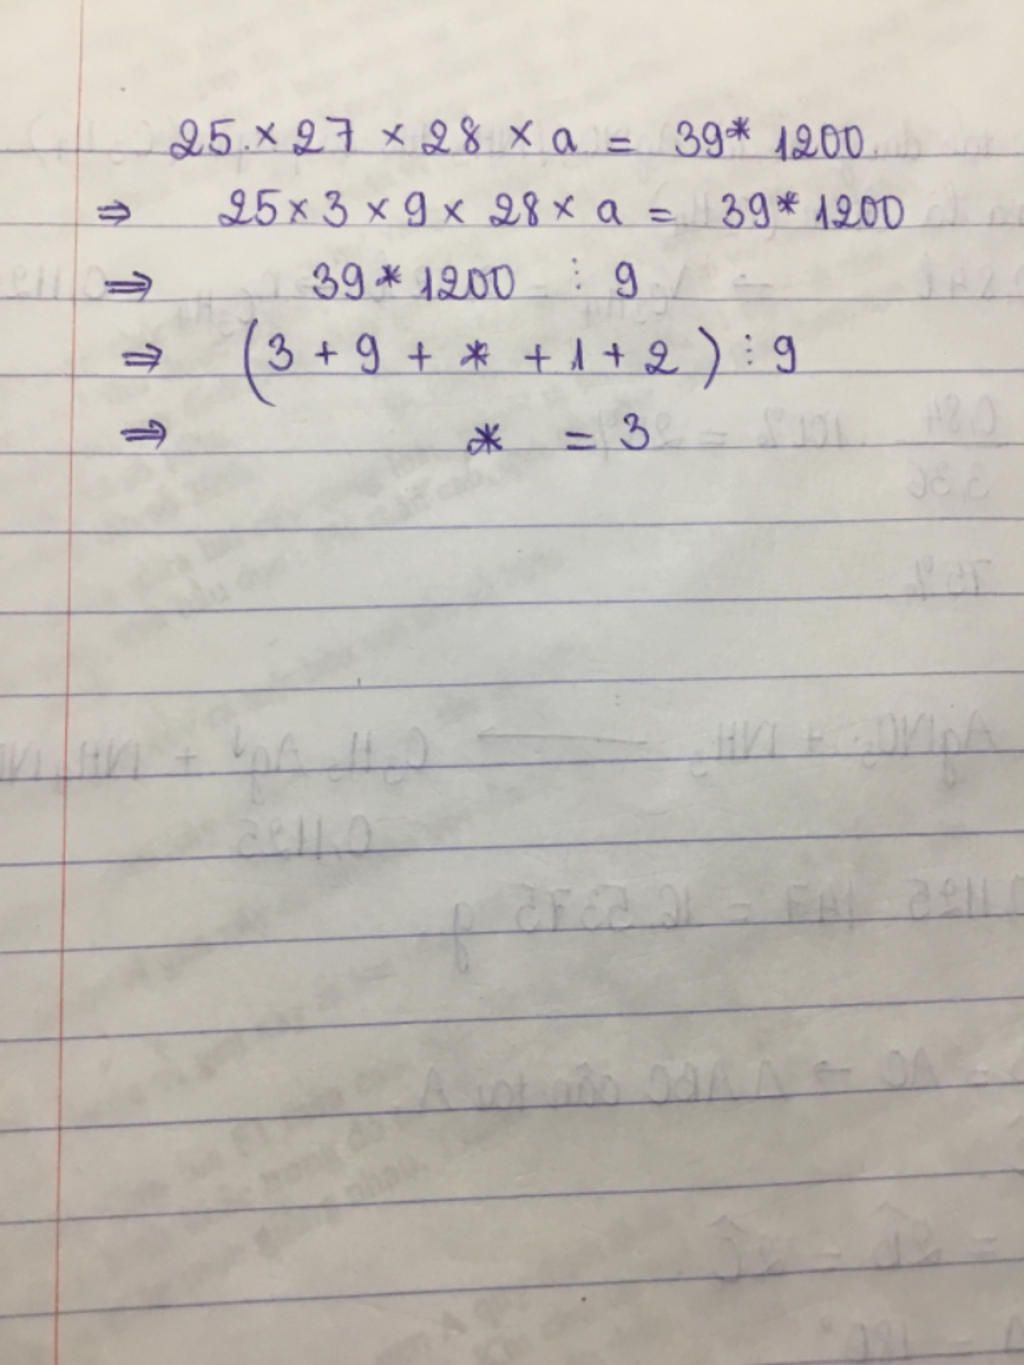 25 × 27 × 28 × a = 39* 1200
⇒ 25 × 3 × 9 × 28 × a = 39* 1200
⇒ 39* 1200 ⋮ 9
⇒ (3 + 9 + * + 1 + 2) ⋮ 9
⇒ * = 3